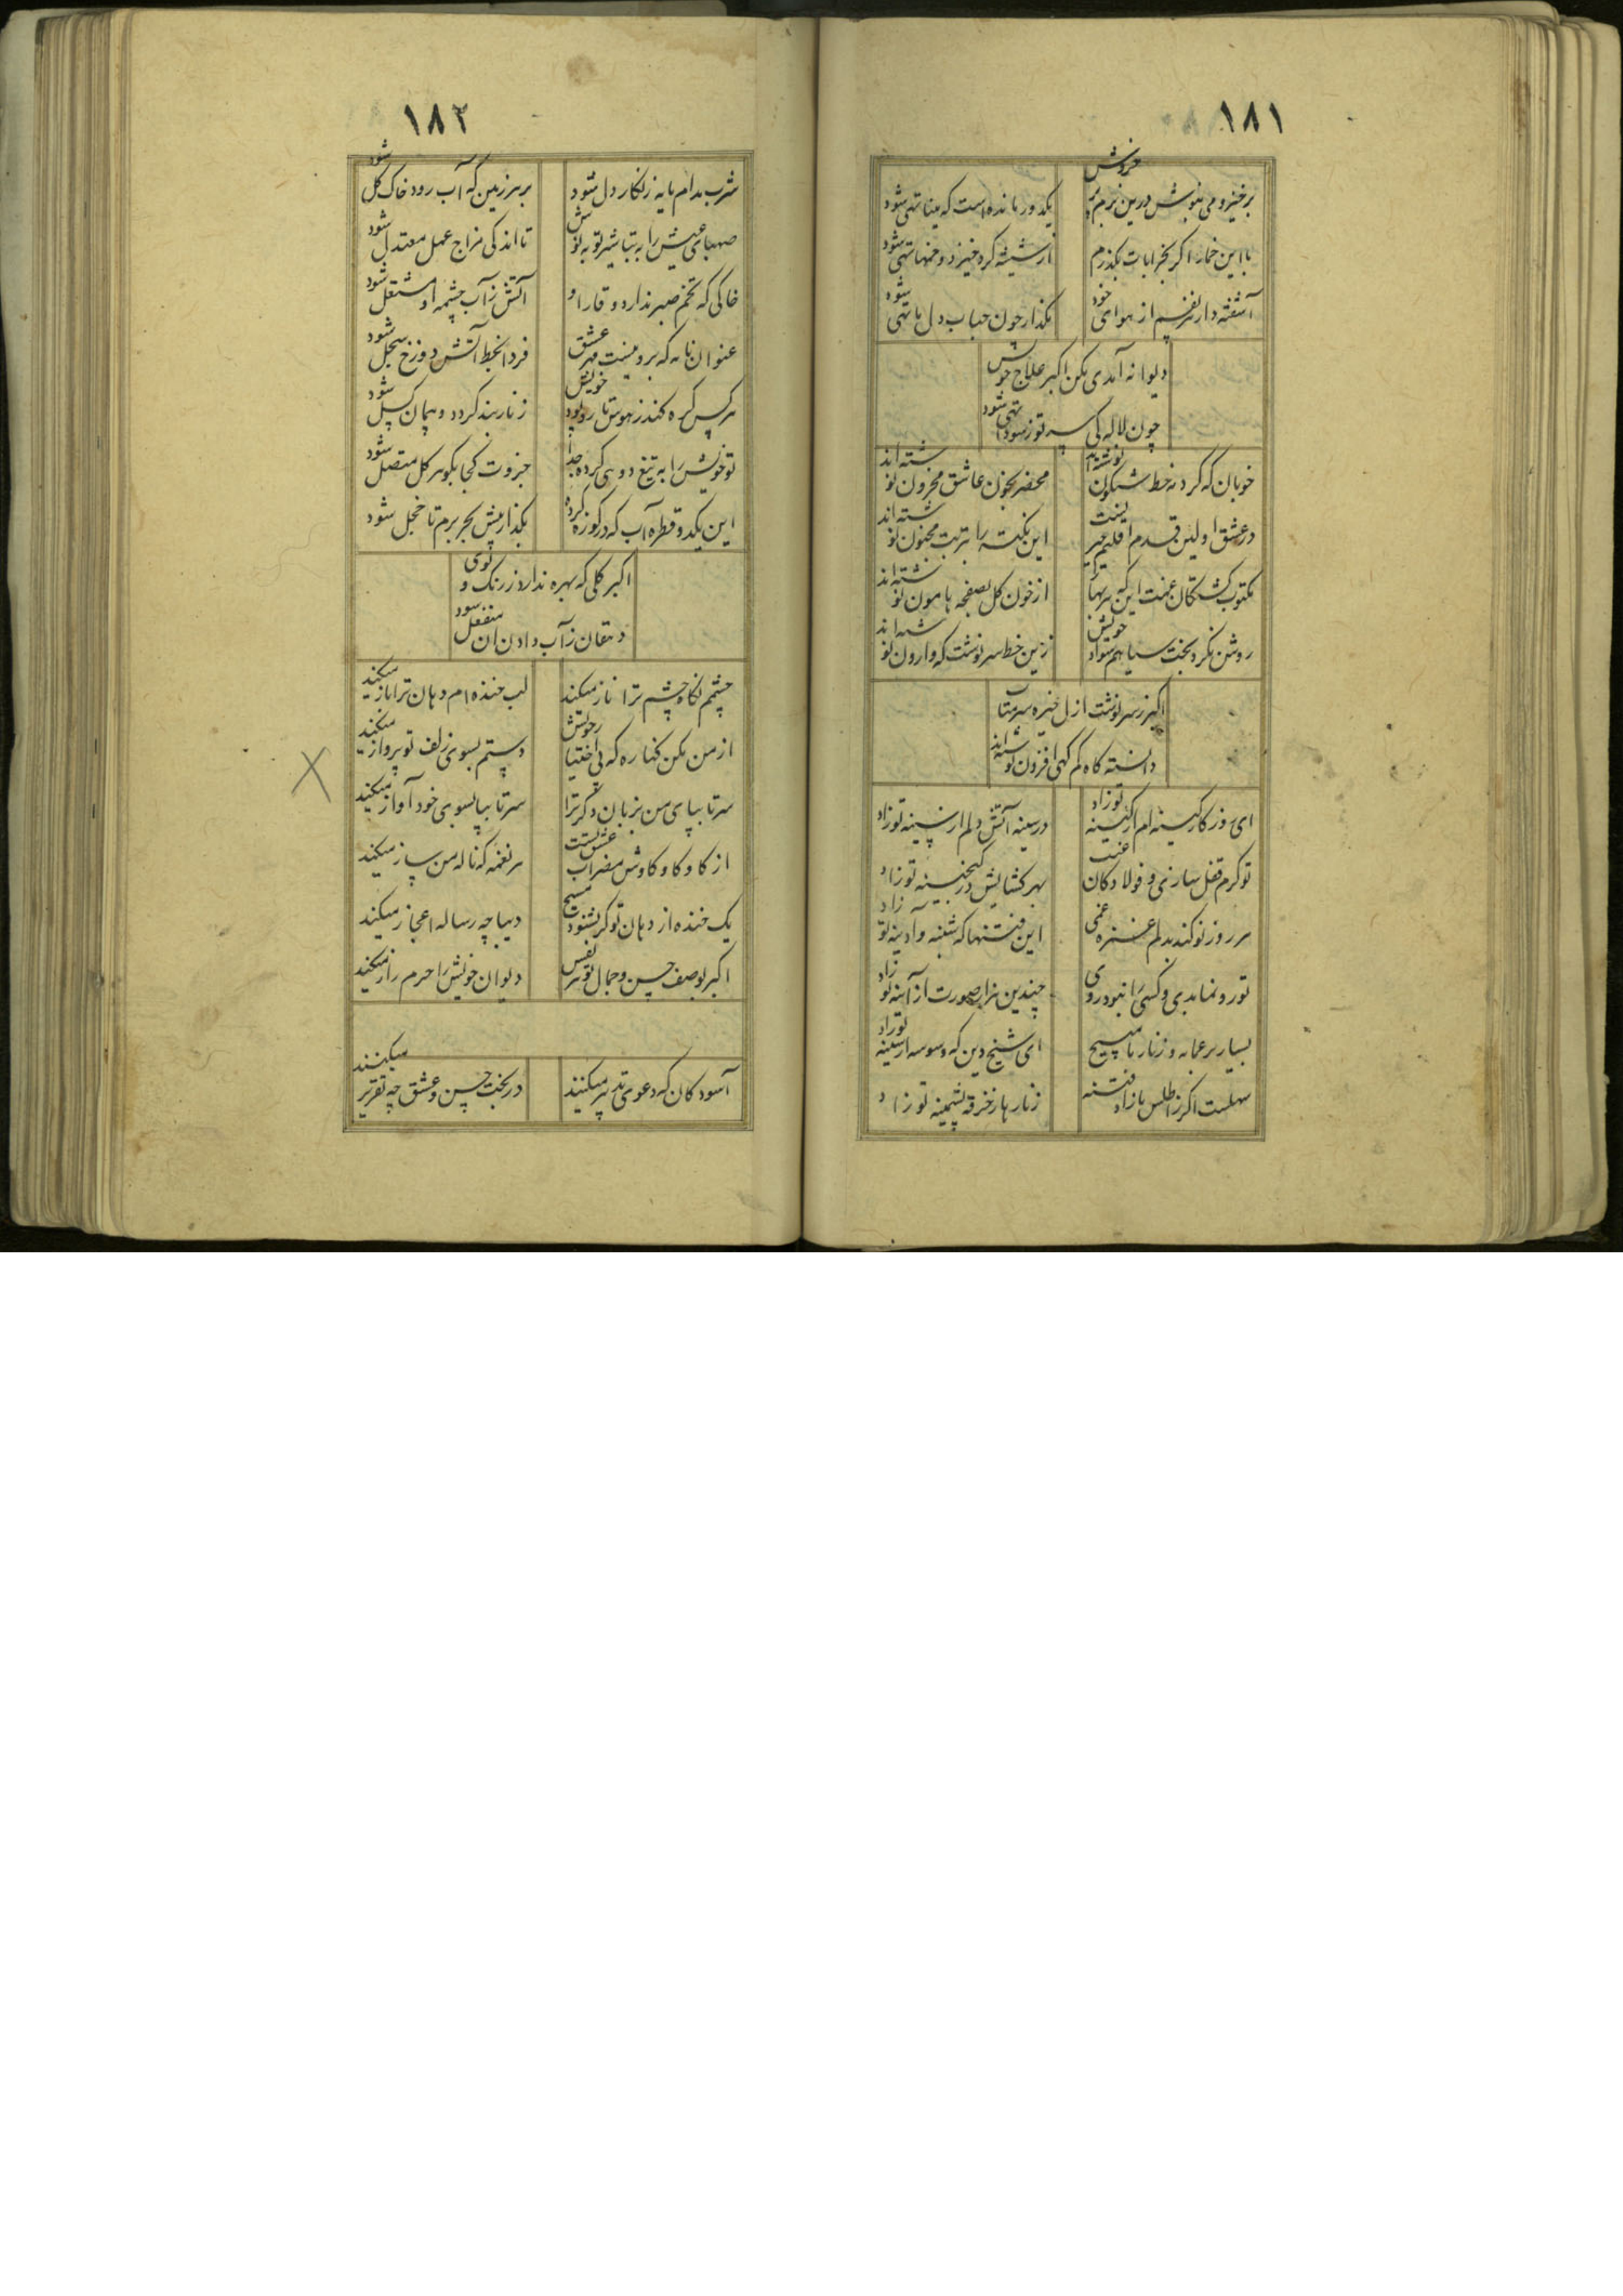 ۱۸۱
برخیز و می بنوش درین بزم پر خروش
یکدور مانده است که مینا تهی شود
با این خمار اگر بخرابات بگذرم
از شیشه گرد خیزد و خمها تهی شود
آشفته دار نفسم از هوای خود
مگذار چون حباب دل ما تهی شود
دیوانه آمدی بکن اکبر علاج خویش
چون لاله کی سر تو ز سودا تهی شود
خوبان که گرد مه خط شبگون نوشته‌اند
محضر بخون عاشق محزون نوشته‌اند
در عشق اولین قدم اقلیم
این نکته را بتربت مجنون نوشته‌اند
مکتوب کشتگان غمت این که
از خون گل بصفحه هامون نوشته‌اند
روشن نکرد بخت سیاهم سواد خویش
زین خط سرنوشت که وارون نوشته‌اند
اکبر ز سرنوشت ازل خیره سر متاب
دانسته کاه کم گهی افزون نوشته‌اند
ای روزگار کینه‌ام از کینه تو زاد
در سینه آتش دلم از سینه تو زاد
تو گرم قفل سازی و فولاد کان
بهر گشایش در گنجینه تو زاد
هر روز نو کند بدلم غمی
این فتنها که شنبه و آدینه تو زاد
تو رو نمابدی و کسی را نبود روی
چندین هزار صورت از آینه تو زاد
بسیار بر عمامه و زنار ما مپیچ
ای شیخ دین که وسوسه از سینه تو زاد
سهلست اگر ز اطلس ما زاد فتنه
زنارها ز خرقه پشمینه تو زاد
۱۸۲
شرب مدام مایه زنگار دل شود
بر هر زمین که آب رود خاک گل شود
صهبای عیش را به تباشیر توبه نوش
تا اندکی مزاج عمل معتدل شود
خاکی که تخم صبر ندارد وقار او
آتش ز آب چشمه او مشتعل شود
عنوان نامه که برو نیست مهر عشق
فردا بخط آتش دوزخ سجل شود
هر کس گره کند ز هوس تار و پود خویش
زنار بند گردد و پیمان گسل شود
تو خویش را به تیغ دوی کرده جدا
جزوت کجا بگوهر کل متصل شود
این یکدو قطره آب که در کوزه کرده
بگذار پیش بحر برم تا خجل شود
اکبر گلی که بهره ندارد ز رنگ و بوی
دهقان ز آب دادن آن منفعل شود
چشم نگاه چشم ترا ناز میکند
لب خنده‌ام دهان ترا باز میکند
از من مکن کناره که بی اختیار خویش
دستم بسوی زلف تو پرواز میکند
سر تا بپای من بزبان دگر ترا
سر تا بپا بسوی خود آواز میکند
از کاو کاو کاوش مضراب عشق تست
هر نغمه که ناله من ساز میکند
یک خنده از دهان تو گر بشنود مسیح
دیباچه رساله اعجاز میکند
اکبر بوصف حسن و جمال تو هر نفس
دیوان خویش را حرم راز میکند
آسودگان که دعوی تدبیر میکنند
در بحث حسن و عشق چه تقریر میکنند